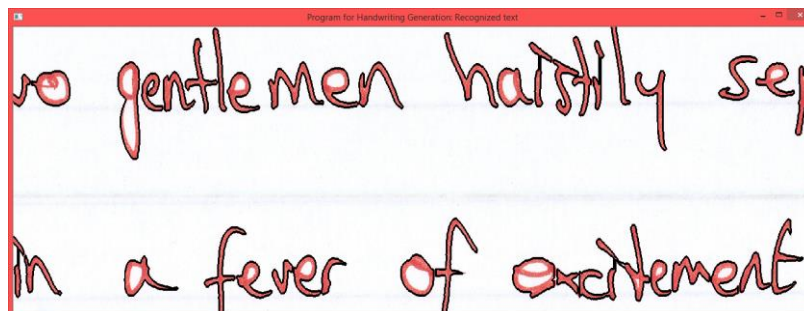 Program for Handwriting Generation: Recognized text
gentlemen haistily sep
in a fever of excitement